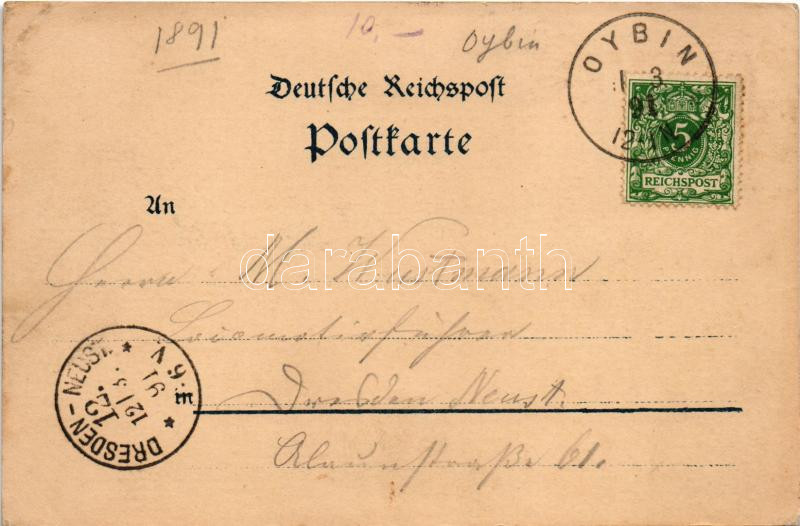 1891
10,-
Oybin
OYBIN
3
91
12-1N
5
PFENNIG
REICHSPOST
Deutsche Reichspost
Postkarte
An
Herrn M. Wustmann
darabanth
Locomotivführer
in Dresden Neust.
Alaunstraße 61.
DRESDEN-NEUST.
12.
12/3.
91
6-7 V